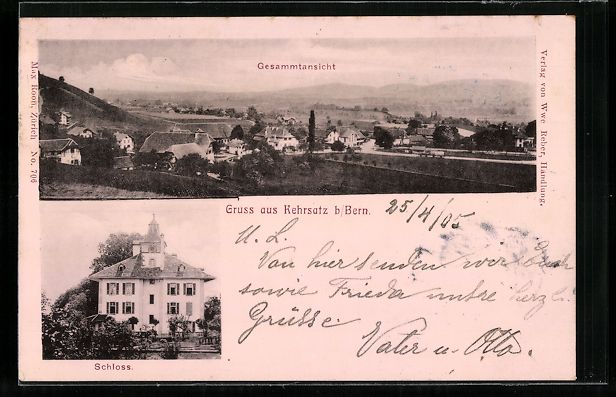 Gesammtansicht
Max Roon, Zürich No. 706
Verlag von Wwe Reber, Handlung.
Gruss aus Kehrsatz b/Bern.
25/4/05
U. L.
Von hier senden wir Euch
sowie Frieda unsre herzl.
Grüsse
Vater u. Otto.
Schloss.